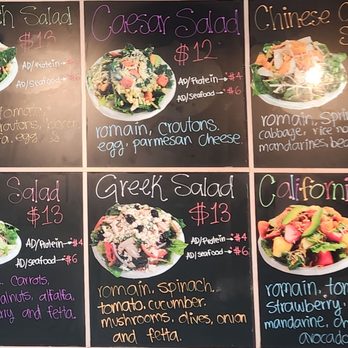 ch Salad
$13
AD/Protein → $4
AD/Seafood → $6
Caesar Salad
$12
AD/Protein → $4
AD/Seafood → $6
romain, croutons.
egg, parmesan cheese.
Chinese C
romain, spri
cabbage, rice no
mandarines, bea
Salad
$13
AD/Protein → $4
AD/Seafood → $6
carrots,
alnuts, alfalfa,
rry and fetta.
Greek Salad
$13
AD/Protein → $4
AD/Seafood → $6
romain, spinach.
tomato, cucumber.
mushrooms, olives, onion
and fetta.
Californi
romain, tom
strawberry
mandarine, Ch
avocado